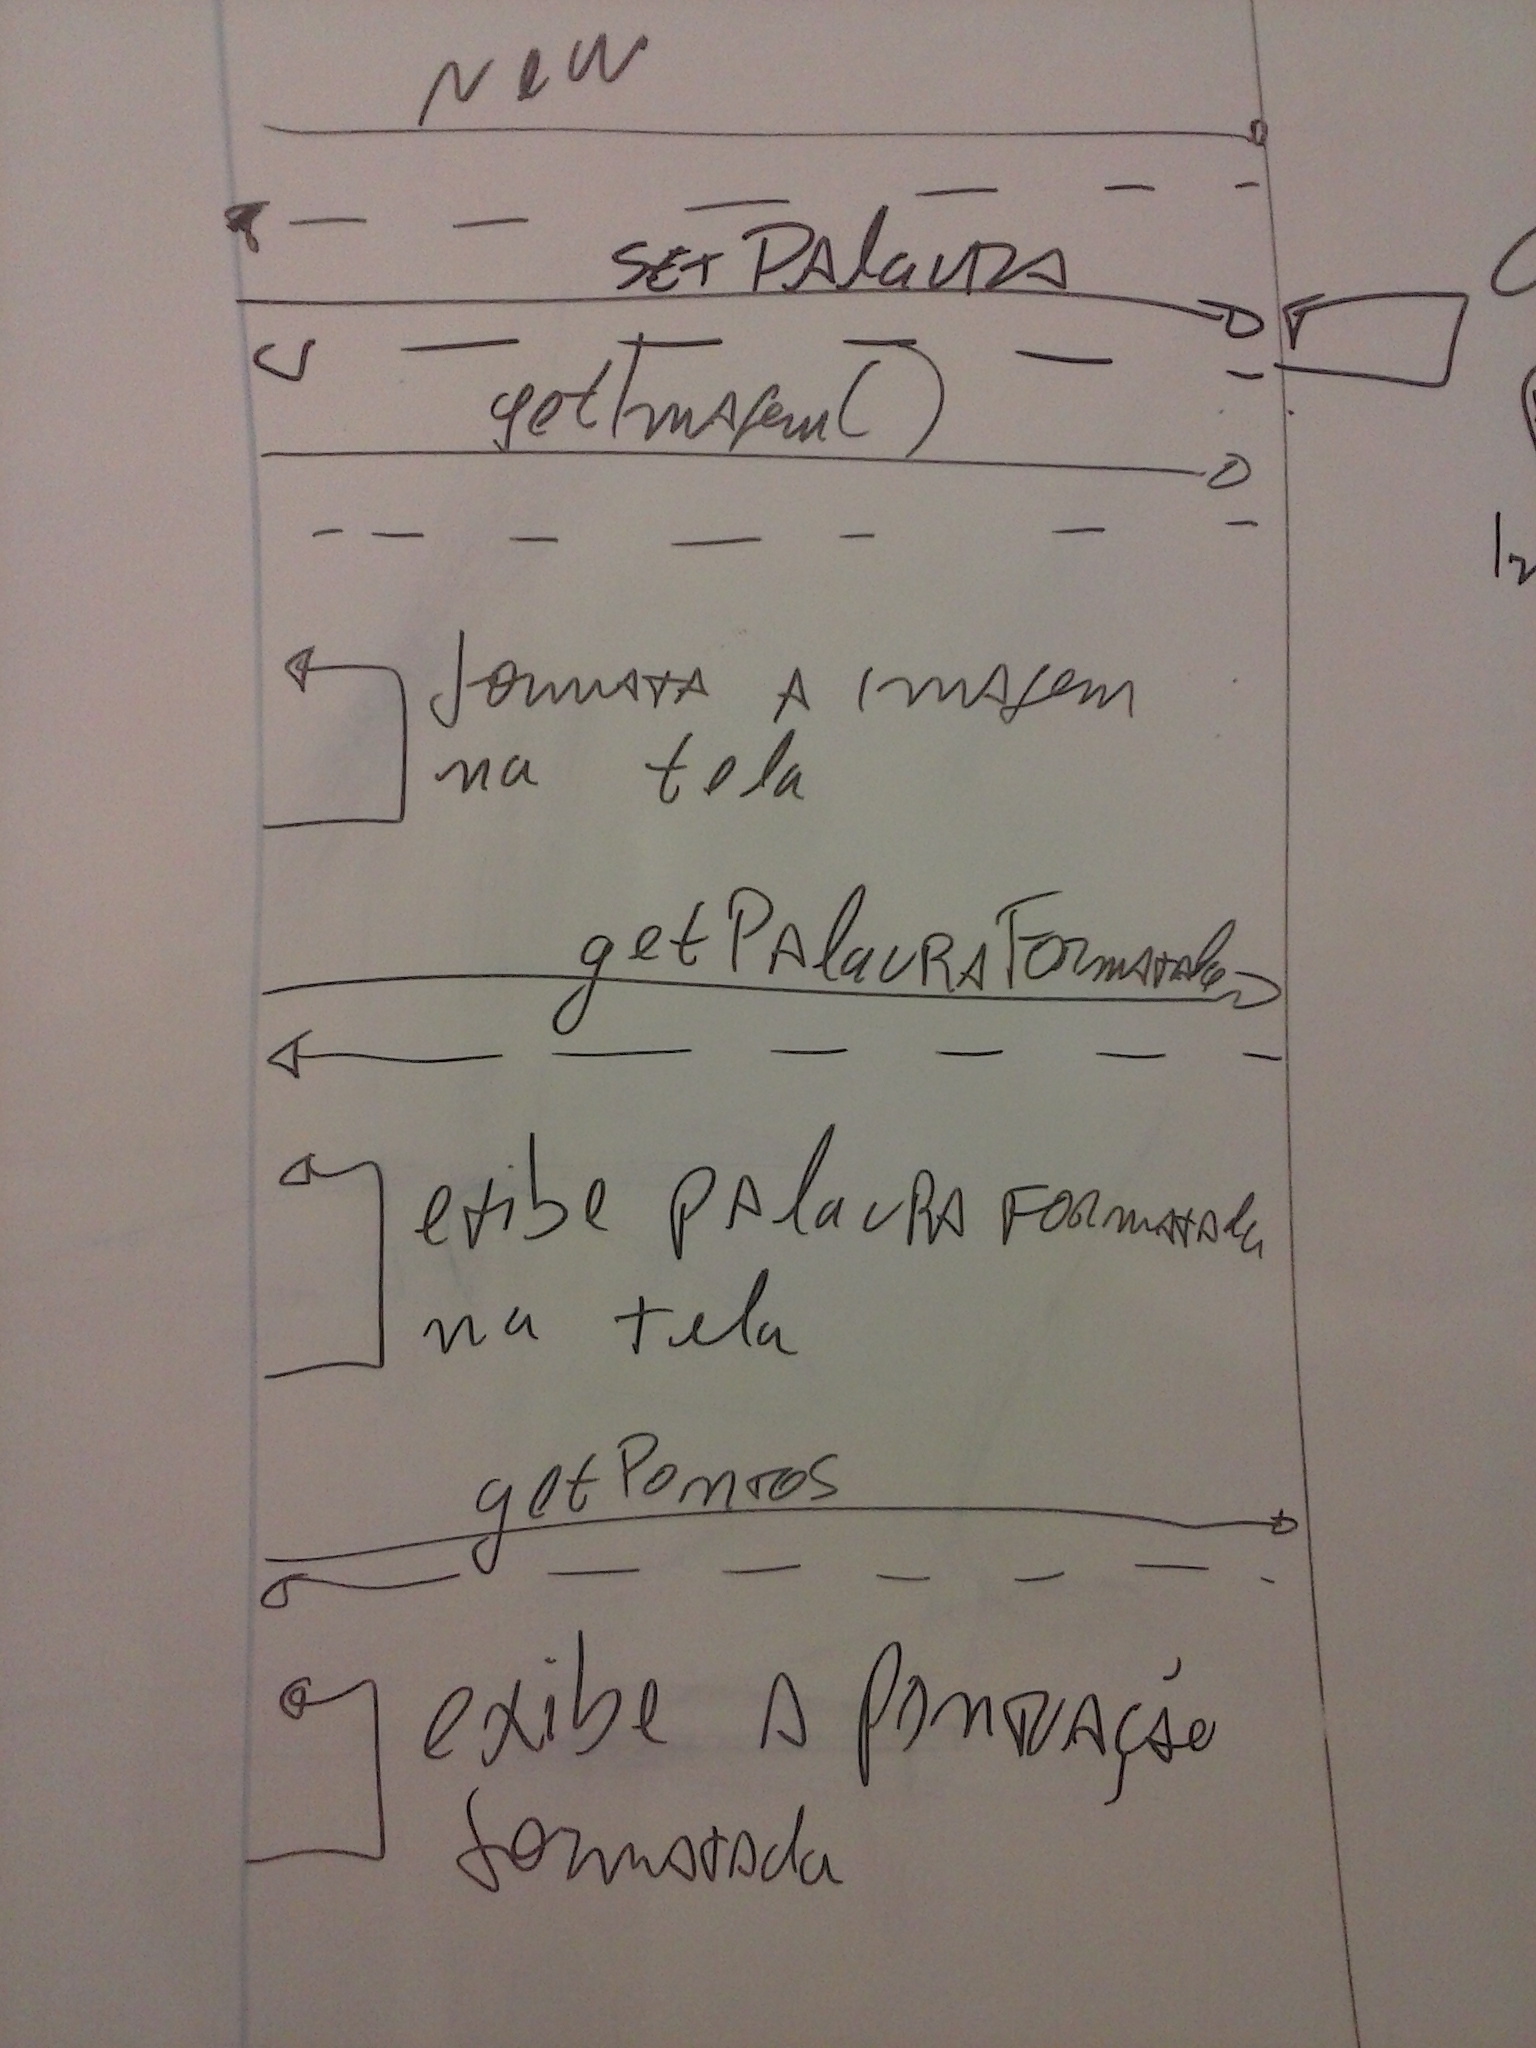 new
setPalavra
getImagem()
formata a imagem
na tela
getPalavraFormatada
exibe palavra formatada
na tela
getPontos
exibe a pontuação
formatada